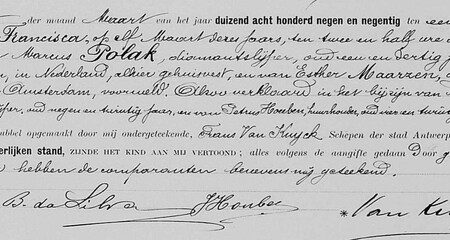 der maand Maart van het jaar duizend acht honderd negen en negentig ten
Francisca, op elf Maart dezes jaars, ten twee en half ure
Marcus Polak, diamantslijper, oud een en dertig
in Nederland, alhier gehuisvest, en van Esther Maarzen,
Amsterdam, voormeld. Aldus verklaard in het bijzijn van
oud negen en twintig jaar, en van Petrus Houben, huurhouder, oud vier en
dubbel opgemaakt door mij ondergeteekende, Frans Van Kuyck Schepen der stad Antwerp
erlijken stand, ZIJNDE HET KIND AAN MIJ VERTOOND; alles volgens de aangifte gedaan Door
hebben de comparanten benevens mij geteekend.
B. da Silva J Hoube Van Ku